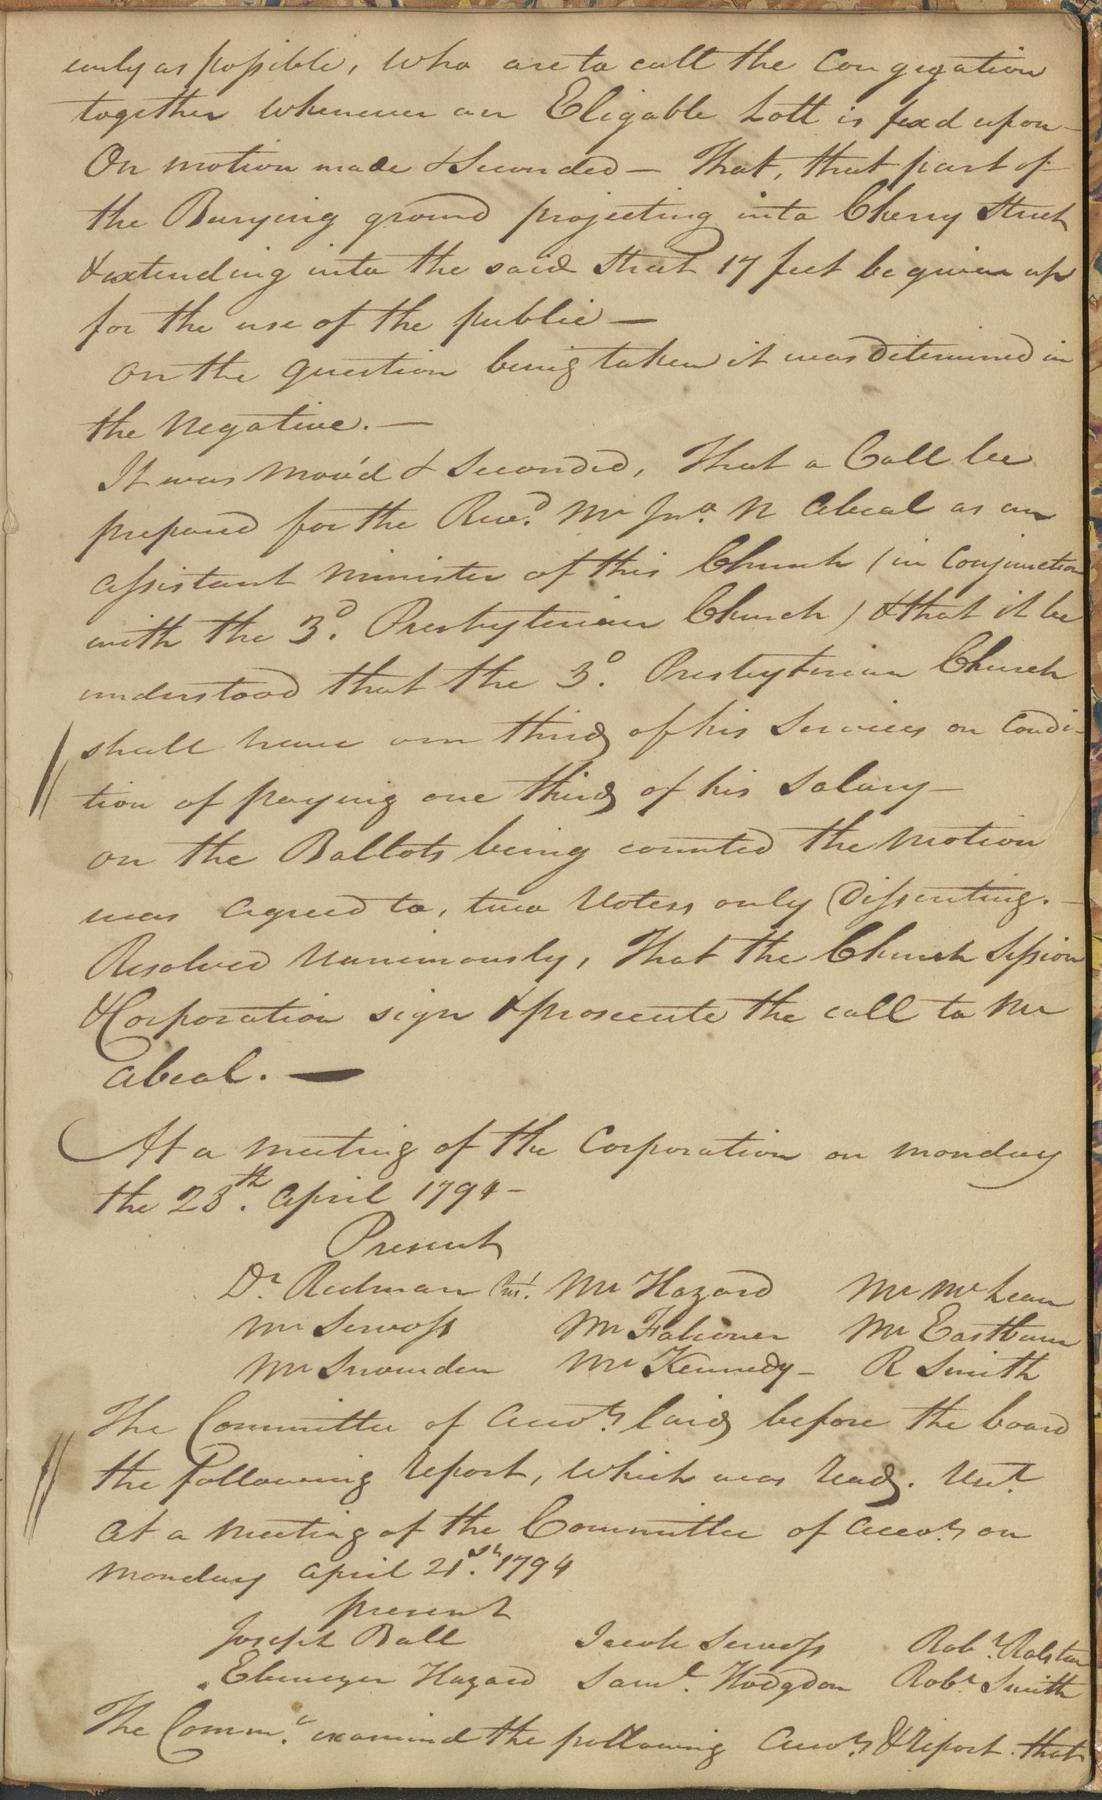 early as possible, who are to call the Congregation
together whenever an Eligable Lott is fixd upon—
On motion made & Seconded — That, that part of
the Burying ground projecting into Cherry Street
& extending into the said Street 17 feet be given up
for the use of the public —
on the question being taken it was Determined in
the Negative. —
It was Mov'd & Seconded, That a Call be
prepared for the Revd. Mr Jno. N Abeal as an
assistant Minister of this Church (in Conjunction
with the 3d. Presbyterian Church) & that it be
understood that the 3d. Presbyterian Church
shall have one third of his Services on Condi-
tion of paying one third of his Salary —
on the Ballots being counted the Motion
was agreed to, two Voters only Dissenting. —
Resolved Unanimously, That the Church Session
& Corporation sign & prosecute the call to Mr
Abeal. —
At a meeting of the Corporation on monday
the 28th. April 1794 —
Present
Dr. Redman Prt. Mr Hazard Mr McLean
Mr Servoss Mr Falconer Mr Eastburn
Mr Snowden Mr Kennedy — R Smith
The Committee of Accots. laid before the board
the following report, which was read. Vizt
At a Meeting of the Committee of Accots. on
Monday April 21st. 1794
present
Joseph Ball Jacob Servoss Robt. Ralston
Ebenezer Hazard Saml. Hodgdon Robt Smith
The Comme. examined the following Accots. & report. that